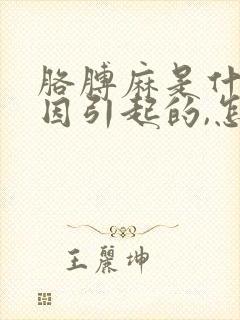 胳膊麻是什
因引起的,怎
王丽坤